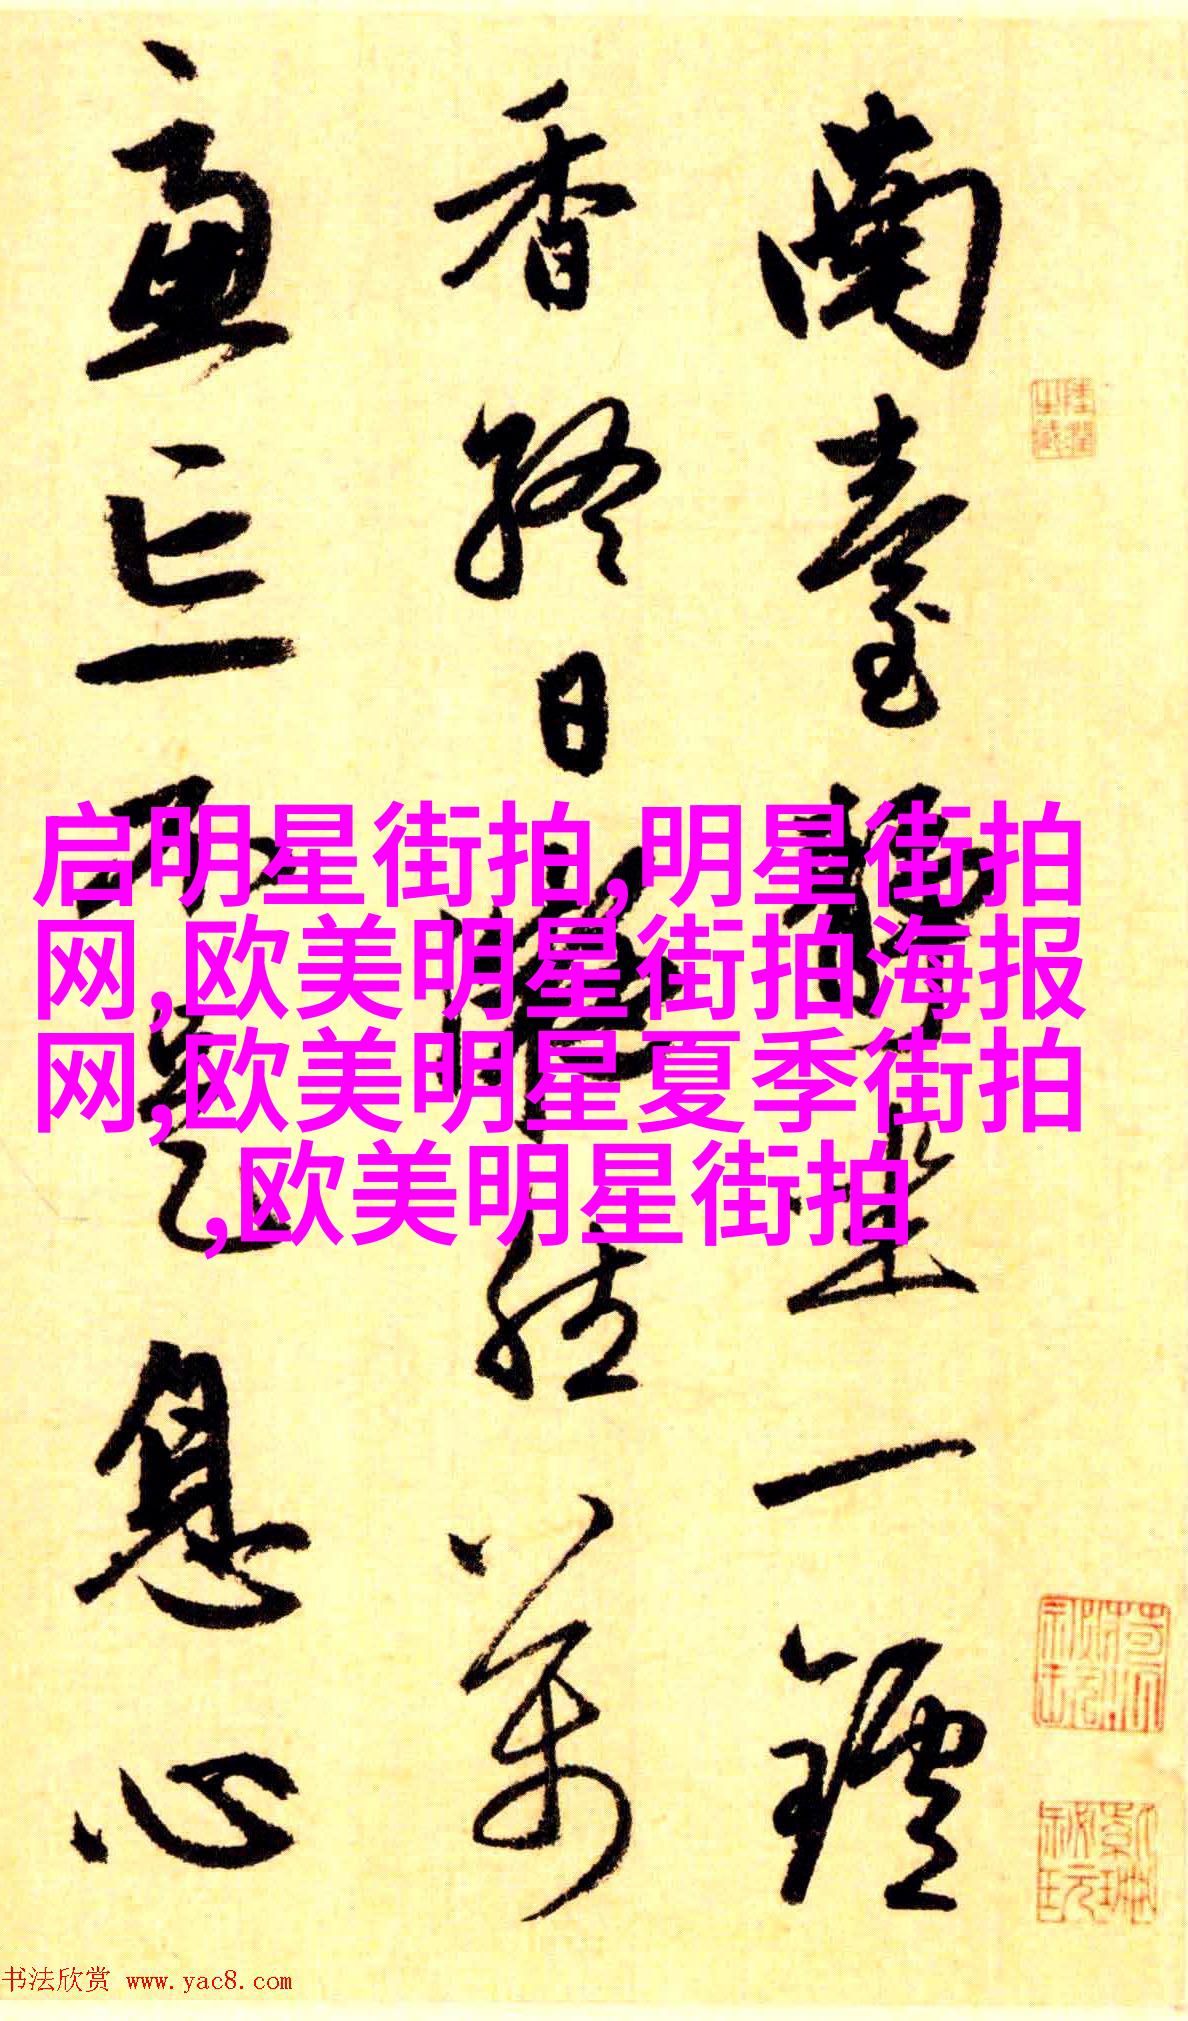 南臺靜坐一鑪
香終日凝然萬
慮亡不是息心
启明星街拍,明星街拍
网,欧美明星街拍海报
网,欧美明星夏季街拍
,欧美明星街拍
书法欣赏 www.yac8.com